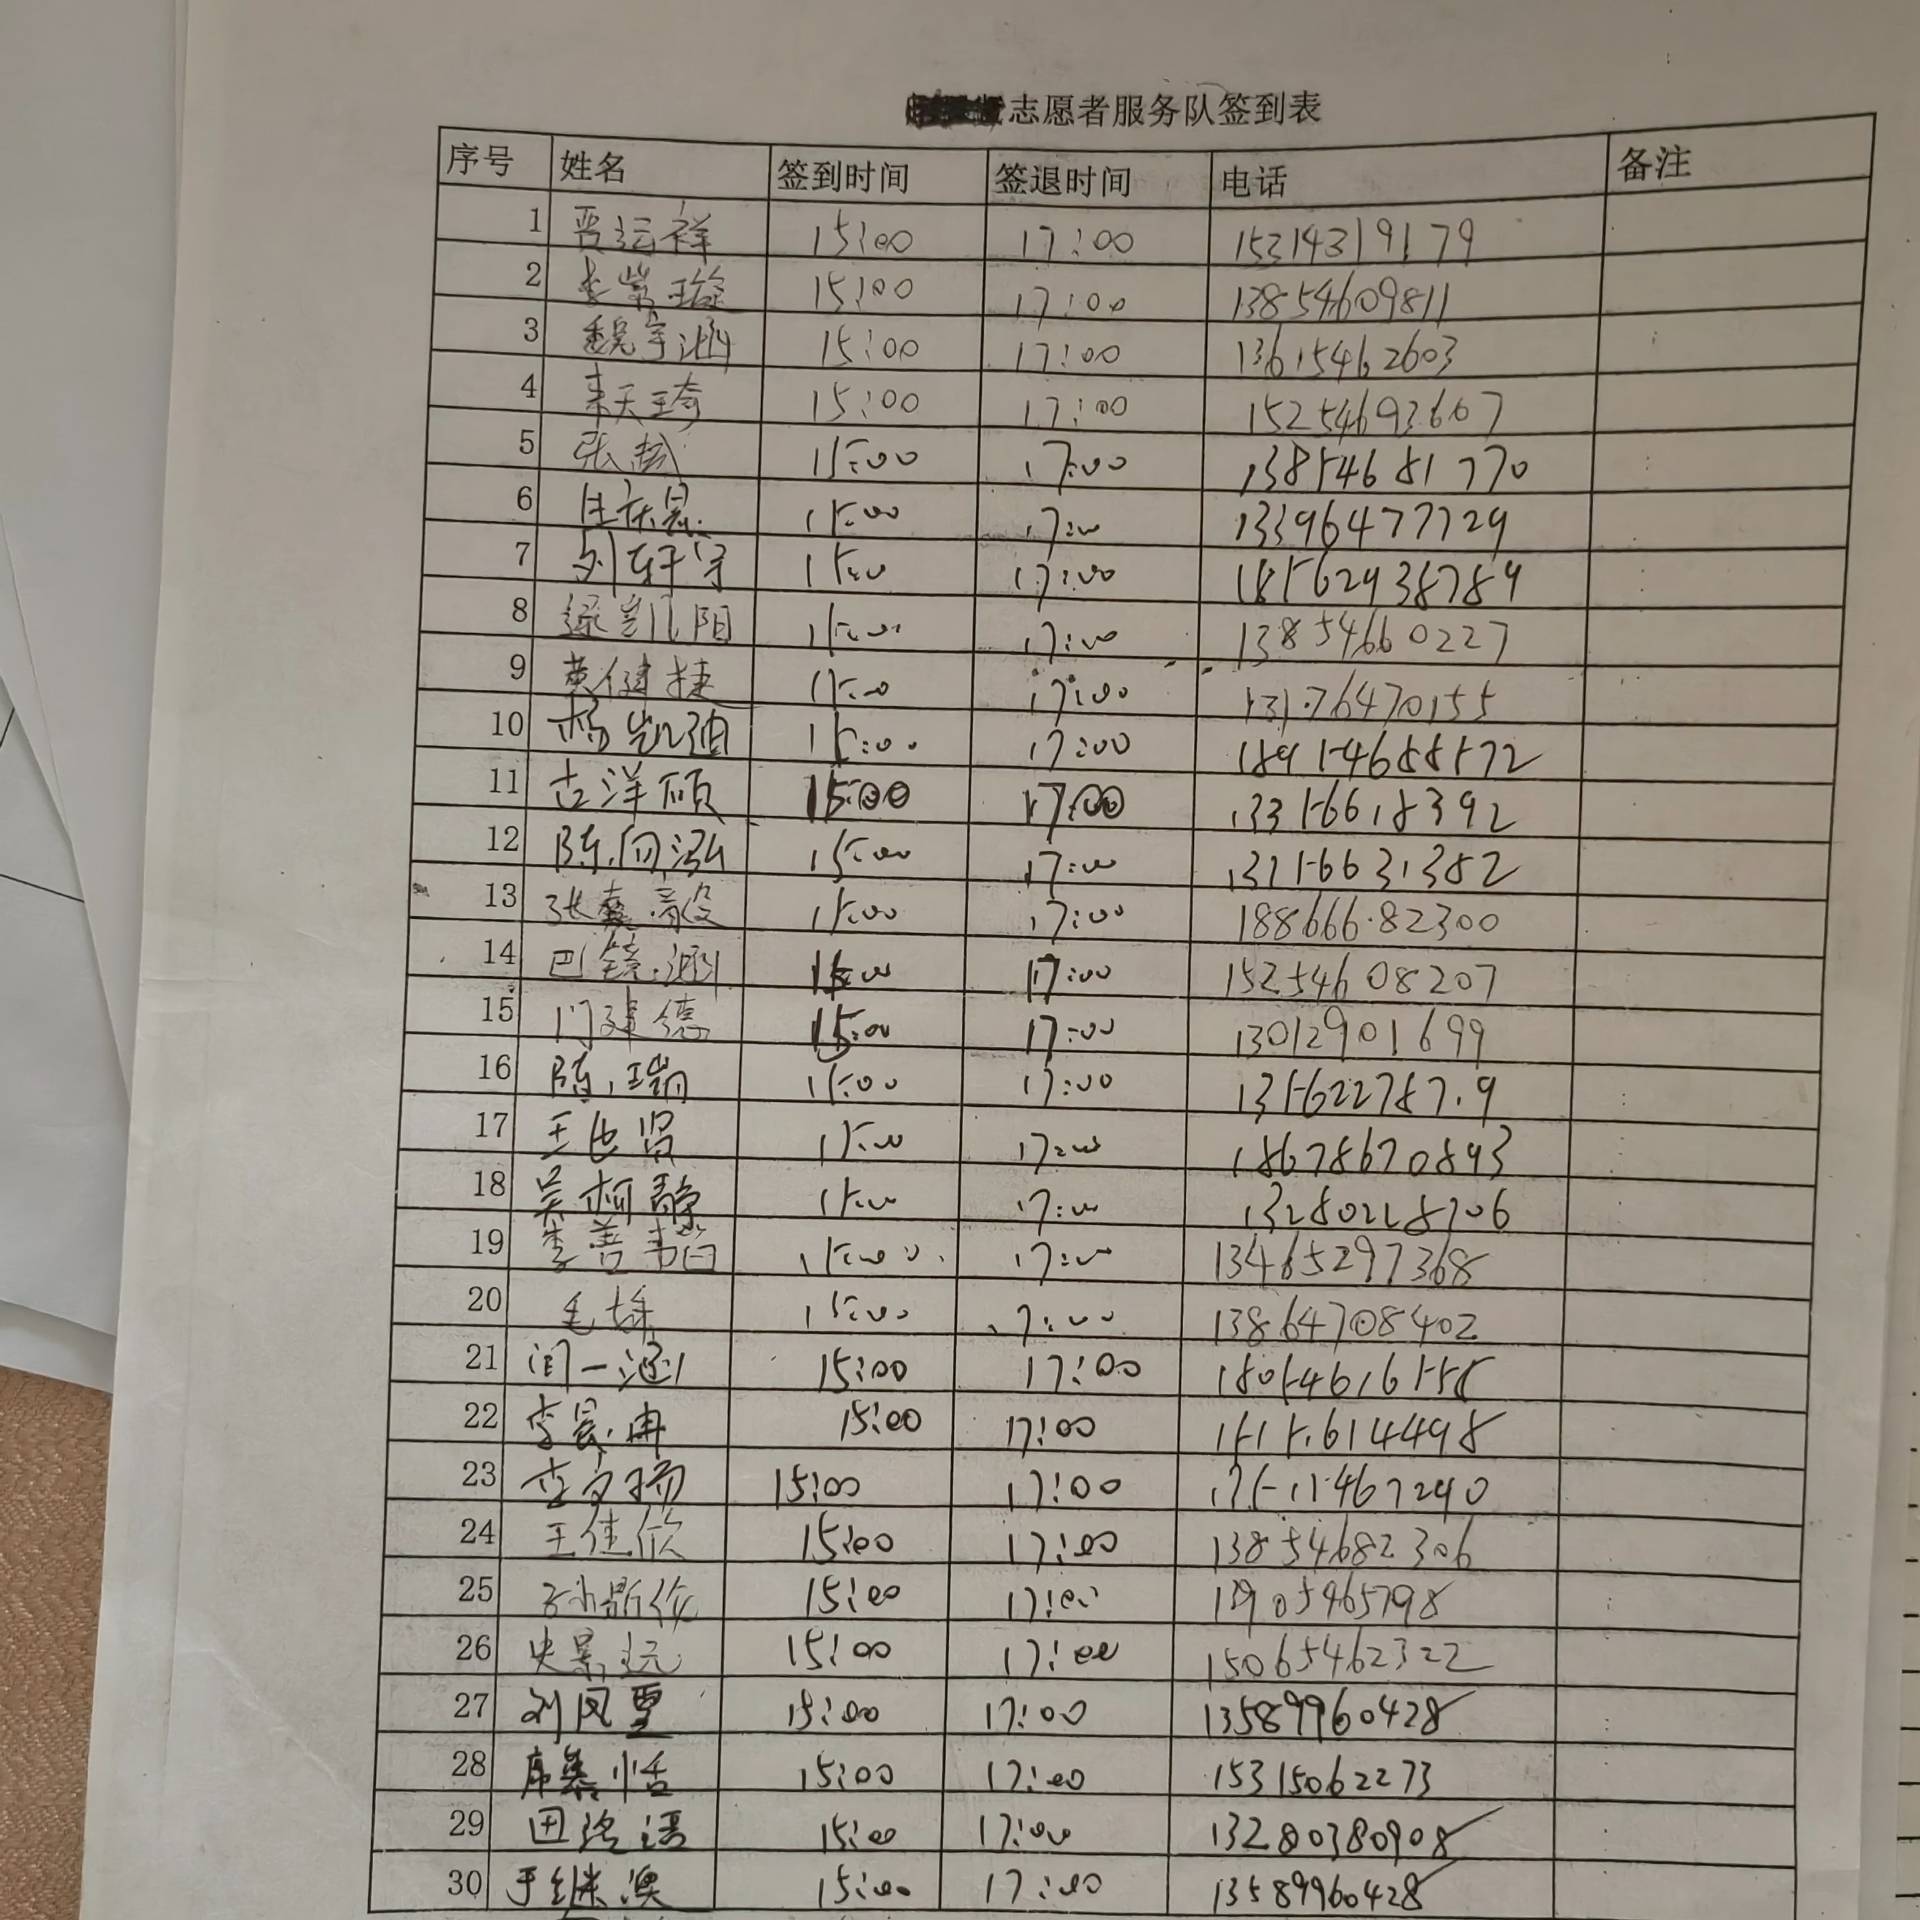 志愿者服务队签到表
序号 姓名 签到时间 签退时间 电话 备注
1 晋运祥 15:00 17:00 15314319179
2 李紫璇 15:00 17:00 13854609811
3 魏宇涵 15:00 17:00 13615462603
4 来天琦 15:00 17:00 15254693667
5 张 15:00 17:00 13854681770
6 15:00 17:00 13396477729
7 刘轩宇 15:00 17:00 18562938789
8 逯凯阳 15:00 17:00 13854660227
9 黄健捷 15:00 17:00 13176470155
10 杨凯迪 15:00 17:00 189154688572
11 古洋硕 15:00 17:00 13356618392
12 陈向泓 15:00 17:00 13256631382
13 张鑫毅 15:00 17:00 18866682300
14 巴镜涵 15:00 17:00 15254608207
15 门建德 15:00 17:00 13012901699
16 陈瑞 15:00 17:00 1356227879
17 王也贤 15:00 17:00 18678670893
18 吴柯静 15:00 17:00 13280228706
19 李善韬 15:00 17:00 13465297368
20 毛 15:00 17:00 13864708402
21 闫一涵 15:00 17:00 18054616155
22 李晨冉 15:00 17:00 15156614498
23 李 15:00 17:00
24 王佳欣 15:00 17:00 13854682306
25 孙斯依 15:00 17:00 13905465798
26 史景远 15:00 17:00 15065462322
27 刘凤贾 15:00 17:00 13589960428
28 席慕恬 15:00 17:00 15315062273
29 田洺语 15:00 17:00 13280380908
30 于继澳 15:00 17:00 13589960428